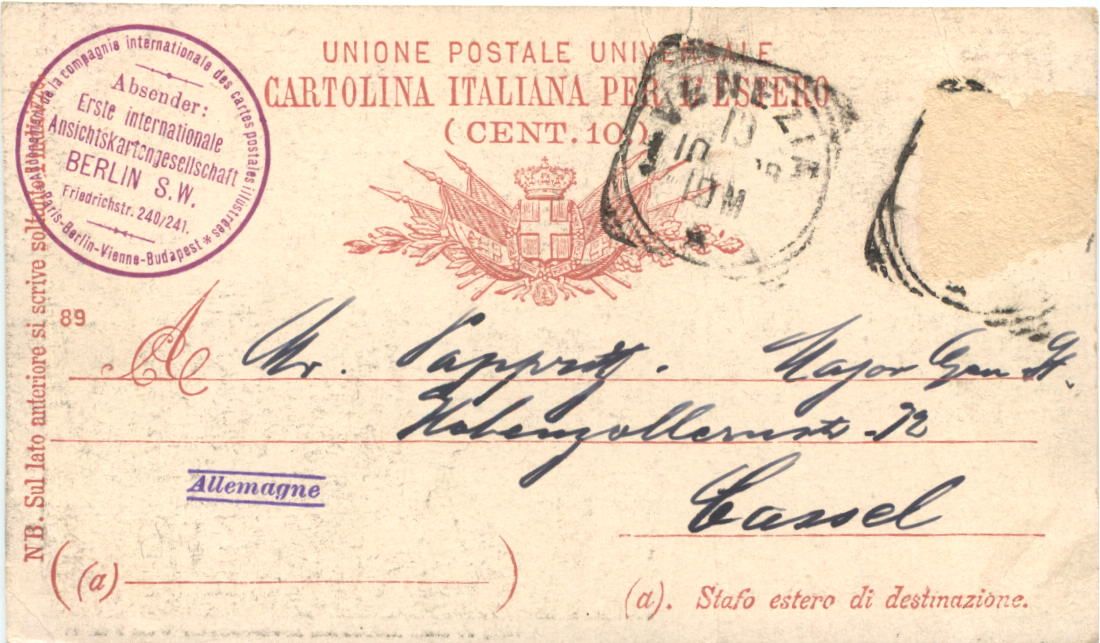 UNIONE POSTALE UNIVERSALE
CARTOLINA ITALIANA PER L'ESTERO
(CENT. 10.)
de la compagnie internationale des cartes postales illustrées
Absender:
Erste internationale
Ansichtskartengesellschaft
BERLIN S.W.
Friedrichstr. 240/241.
* Paris-Berlin-Vienne-Budapest *
VENEZIA
10
10 M
89
A Mr. Pappritz. Major Gen St.
Hohenzollernstr. 72
Allemagne
Cassel
(a)
(a). Stato estero di destinazione.
NB. Sul lato anteriore si scrive soltanto l'indirizzo.